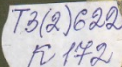 Т3(2)622
К 172